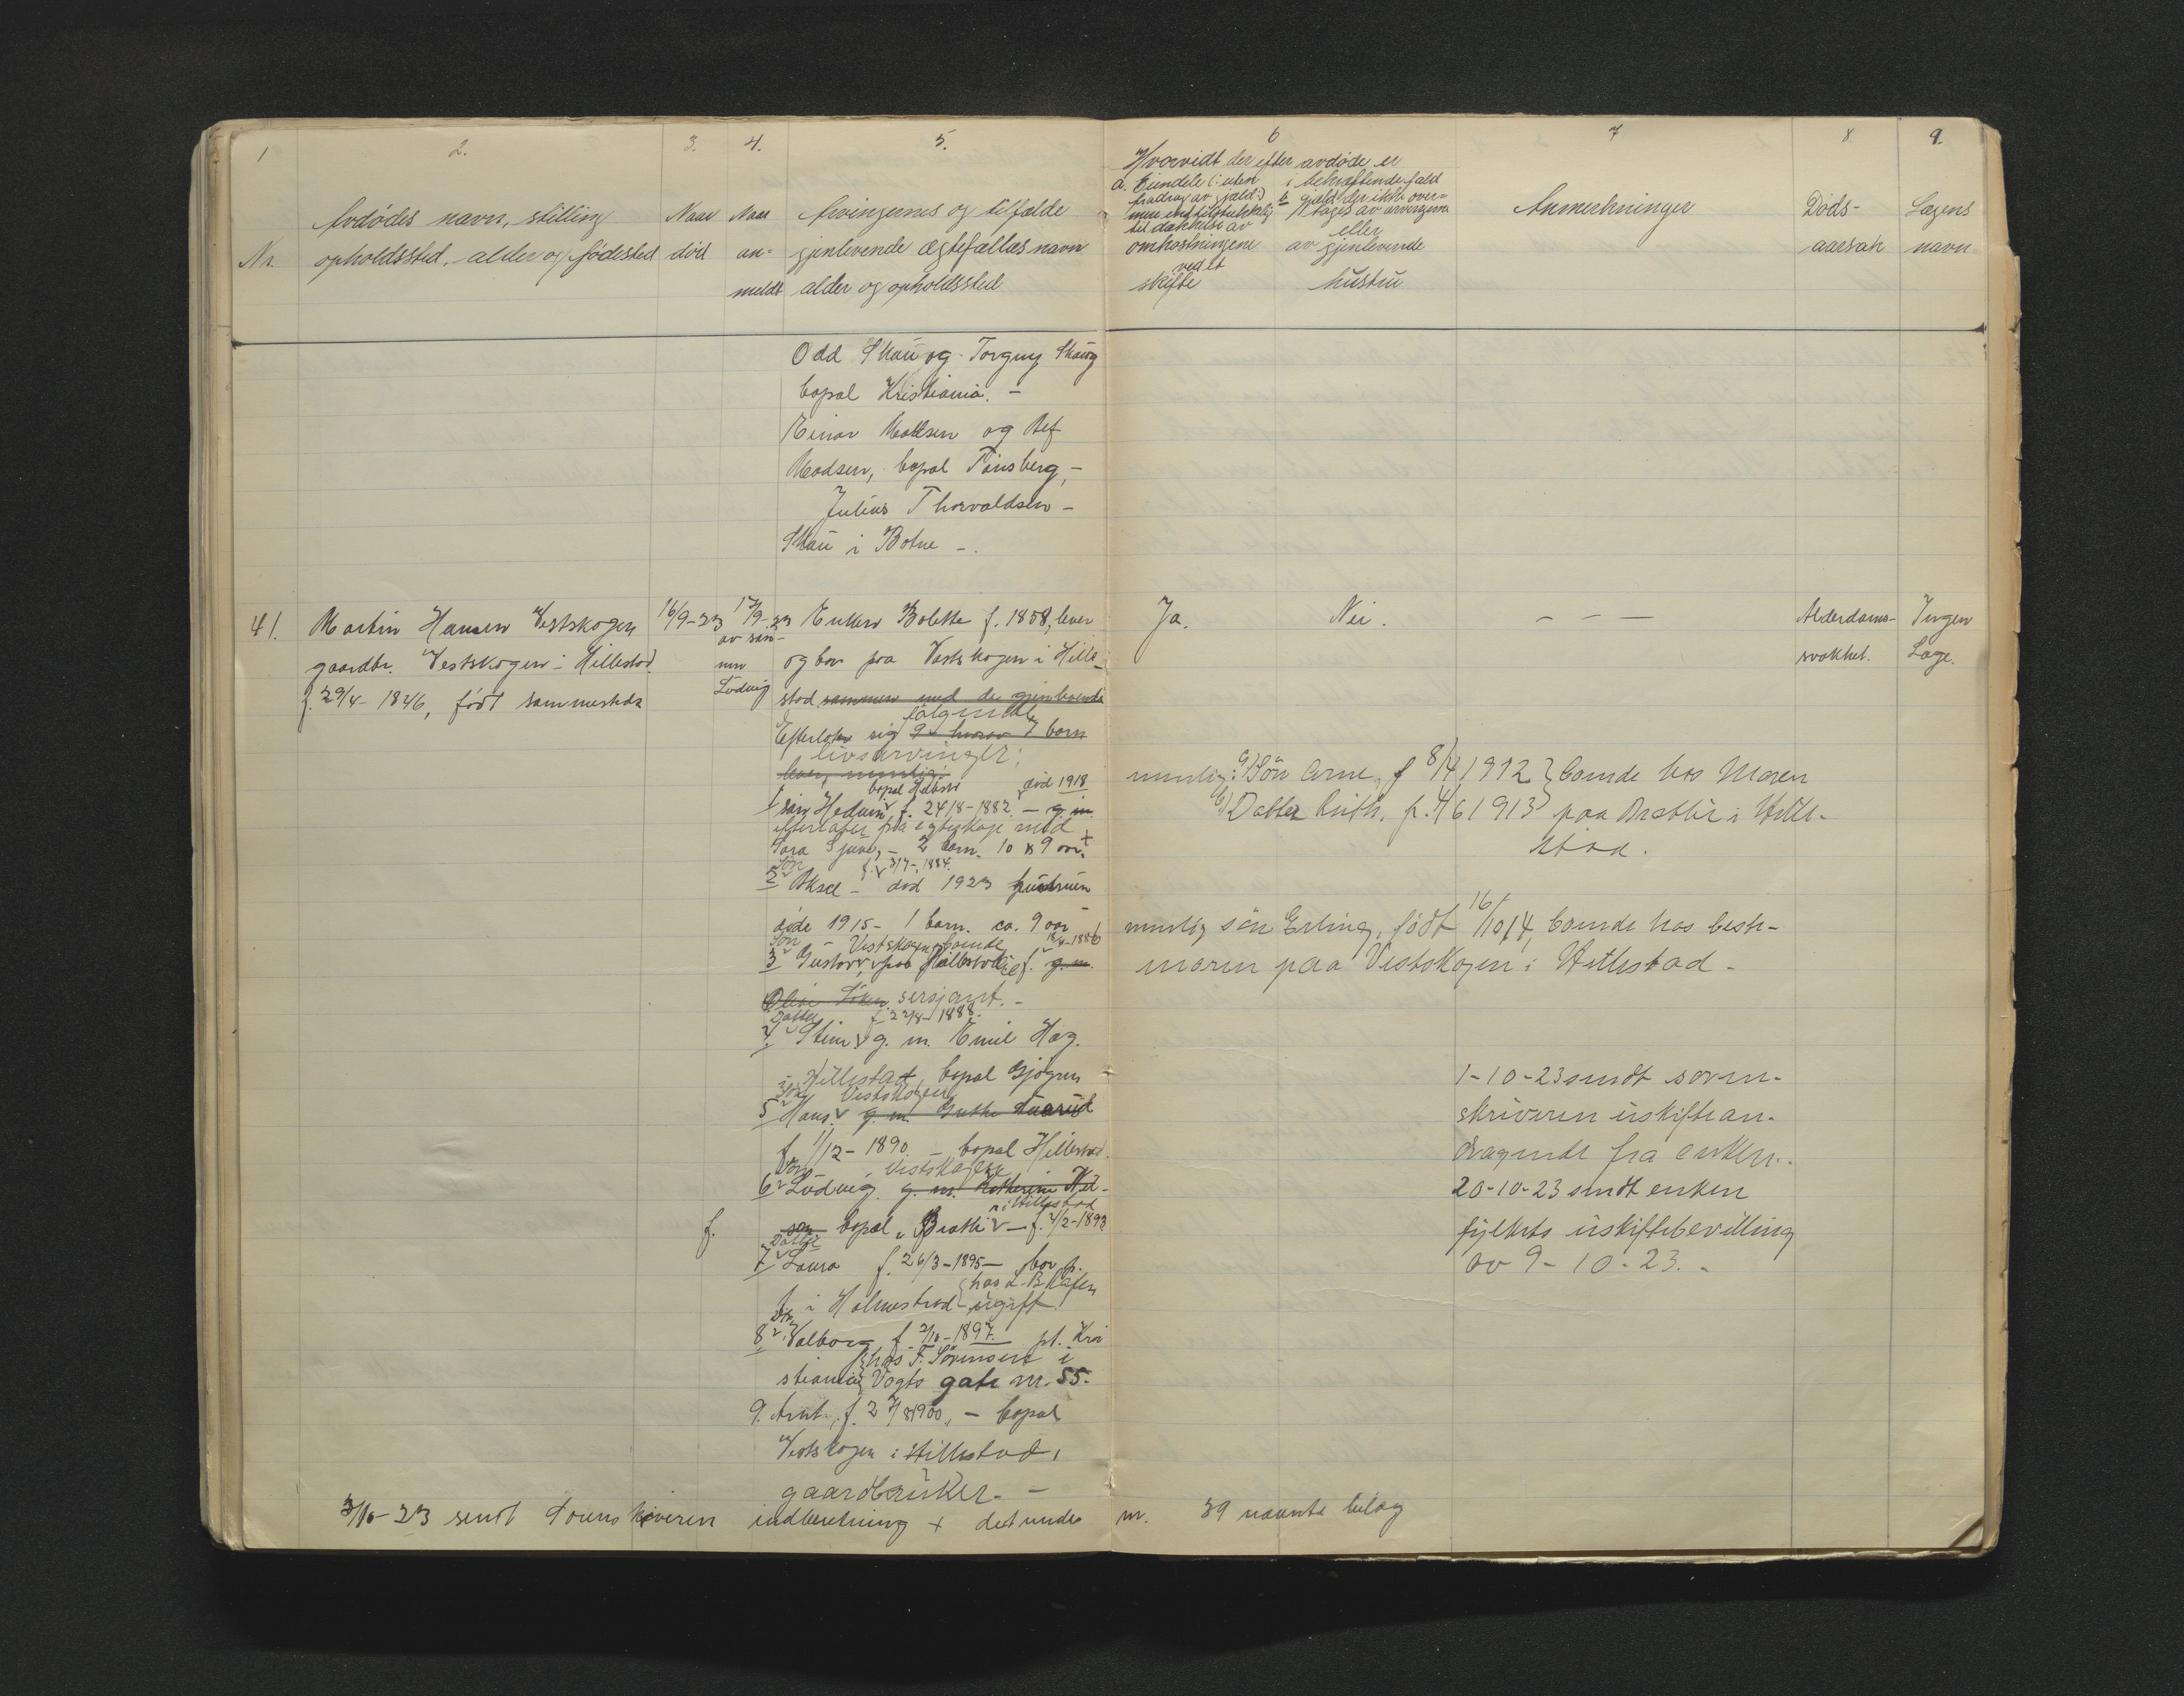 1 2. 3. 4. 5. 6 7 8. 9.
Nr.
Avdødes navn, stilling
opholdssted, alder og fødested
Naar
død
Naar
an-
meldt
Arvingernes og tilfælde
gjenlevende ægtefælles navn
alder og opholdssted
Hvorvidt der efter avdøde er
a. Eiendele (: uten
fradrag av gjæld :)
til dækkelse av
omkostningene
ved et
skifte
i bekræftende fald
b gjæld der ikke over-
tages av arvingerne
eller
av gjenlevende
hustru
Anmerkninger
Døds-
aarsak
Lægens
navn
Odd Skau og Torguy Skaug
bopal Kristiania. -
Einar Madsen og Alf
Madsen, bopal Tønsberg, -
Julius Thorvaldsen -
Skau i Botne -.
41. Martin Hansen Vestskogen
gaardbr. Vestskogen i Hillestad.
f. 29/4- 1846, født sammesteds
16/9-23
17/9-23
av søn-
nen
Ludvig
Enken Bolette f. 1858, lever
og bor paa Vestskogen i Hille-
stad sammen med de gjenboende
følgende
Efterlater sig 9 hvorav 7 barn
livsarvinger:
lever, nemlig:
bopal Hillestad død 1918
1 søn Hedvin f. 24/8-1882. - g. m.
efterlater fra egteskap med
Sara Sjuve, - 2 barn. 10 & 9 aar. +
Søn f. 3/7-1884.
2 Aksel - død 1923 hustruen
døde 1915- 1 barn. ca. 9 aar
Søn Vestskogen boende 18/4-1886
3 Gustav, paa Hillestad f. g. m.
sersjant. -
Datter f. 22/8-1888.
4. Stina g. m. Emil Hag.
i Hillestad, bopal Gjøgren
Søn Vestskogen
5 Hans. g. m. Guthe
f. 1/12- 1890. - bopal Hillestad.
Søn Vestskogen
6 Ludvig. g. m. Katherine Nil-
i Hillestad
sen bopal „Bratli" - f. 4/2-1893
f.
Datter
7 Laura f. 26/3-1895- bor p.
hos L. B.
t. i Holmestrand - ugift
Dtr
8 Valborg f. 2/10-1897. pt. Kri
hos F. Sørensen i
stiania Vogts gate nr. 55.
9. Arnt, f. 27/8 1900, - bopal
Vestskogen i Hillestad,
gaardbruker. -
Ja. Nei. - - -
Alderdoms-
svakhet.
Ingen
Læge.
nemlig: a) Søn Arne, f 8/4 1912 } boende hos Maren
b) Datter Ruth, f. 4/6 1913 paa Brattli i Hille-
stad.
nemlig søn Erling, født 16/10 14, boende hos beste-
moren paa Vestskogen i Hillestad -
1-10-23 sendt soren-
skriveren uskiftean-
dragende fra enken. -
20-10-23 sendt enken
fylkets uskiftebevilling
av 9-10-23. -
3/10-23 sendt Sorenskriveren indberetning + det under nr. 39 nævnte bilag